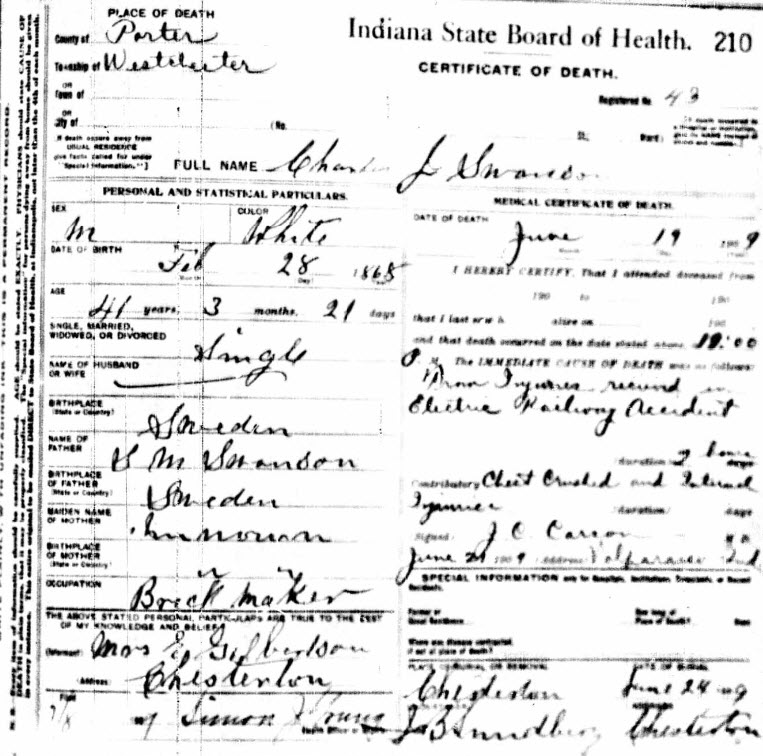 PLACE OF DEATH
County of Porter
Indiana State Board of Health. 210
Township of Westchester
CERTIFICATE OF DEATH.
OR
Town of
Registered No. 43
OR
City of
(No. St; Ward)
If death occurs away from
USUAL RESIDENCE
give facts called for under
"Special Information."
FULL NAME Charles J Swanson
PERSONAL AND STATISTICAL PARTICULARS.
SEX
M
COLOR
White
DATE OF BIRTH
Feb 28 1868
AGE
41 years, 3 months, 21 days
SINGLE, MARRIED,
WIDOWED, OR DIVORCED
Single
NAME OF HUSBAND
OR WIFE
BIRTHPLACE
(State or Country)
Sweden
NAME OF
FATHER
S M Swanson
BIRTHPLACE
OF FATHER
(State or Country)
Sweden
MAIDEN NAME
OF MOTHER
Unnown
BIRTHPLACE
OF MOTHER
(State or Country)
" "
OCCUPATION
Brick Maker
THE ABOVE STATED PERSONAL PARTICULARS ARE TRUE TO THE BEST
OF MY KNOWLEDGE AND BELIEF
(Informant) Mrs E Gilbertson
(Address) Chesterton
Filed
Simon J Young
MEDICAL CERTIFICATE OF DEATH.
DATE OF DEATH
June 19 1909
I HEREBY CERTIFY, That I attended deceased from
190 to 190
that I last saw h alive on 190
and that death occurred on the date stated above
P M. The IMMEDIATE CAUSE OF DEATH was as follows:
From Injuries received in
Electric Railway Accident
(duration) 2 hours days
Contributory Chest Crushed and Internal
Injuries (duration) days
Signed J. C. Carson M D
June 21 1909 (Address) Valparaiso Ind
SPECIAL INFORMATION only for Hospitals, Institutions, Transients, or Recent
Residents.
Former or
Usual Residence
How long at
Place of Death? Days
Where was disease contracted,
if not at place of death?
PLACE OF BURIAL OR REMOVAL
Chesterton
DATE OF BURIAL
June 24 09
J B Lundberg Chesterton